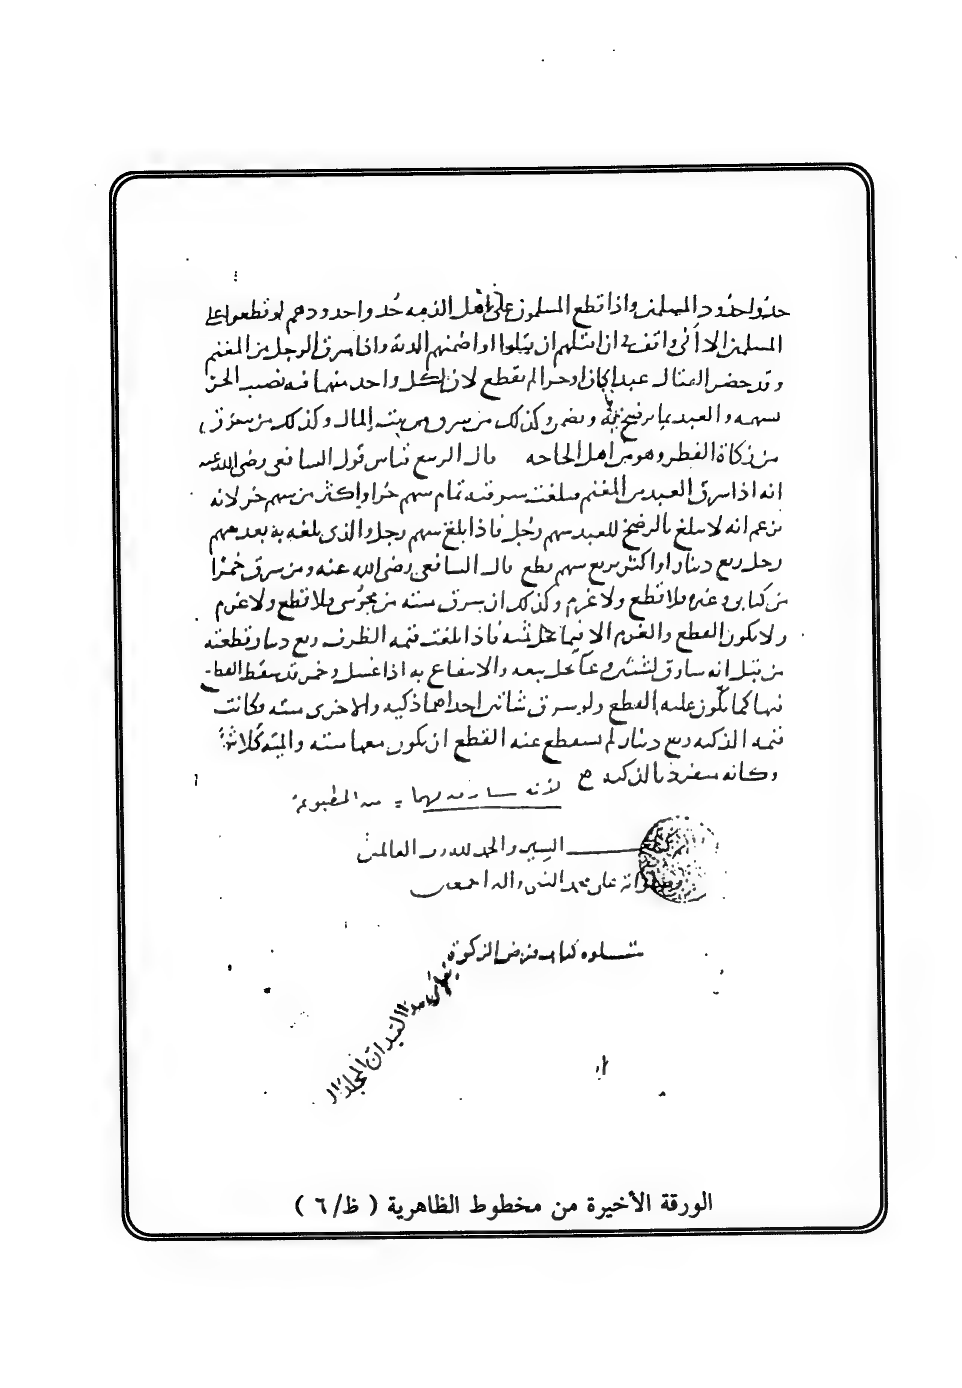 حدوا حدود المسلمين واذا قطع المسلمون على اهل الذمه حُدوا حدودهم لو قطعوا على
المسلمين الا أنى واقف فى ان اقتلهم ان قتلوا او اضمنهم الديه واذا سرق الرجل من المغنم
وقد حضر القتال عبدا كان او حرا لم يقطع لان لكل واحد منهما فيه نصيب الحر
بسهمه والعبد بما يرضخ له وكذلك من سرق من بيت المال وكذلك من سرق
من زكاة الفطر وهو من اهل الحاجه قال الربيع قياس قول الشافعى رضى الله عنه
انه اذا سرق العبد من المغنم فبلغت سرقته تمام سهم حر او اكثر من سهم حر لانه
يزعم انه لا يبلغ بالرضخ للعبد سهم رجل فاذا بلغ سهم رجل والذى بلغه به بعد سهم
رجل ربع دينار او اكثر من ربع سهم قطع قال الشافعى رضى الله عنه ومن سرق خمرًا
من كتابى وغيره فلا قطع ولا غرم وكذلك ان سرق ميته من مجوسى فلا قطع ولا غرم
ولا يكون القطع والغرم الا فيما يحل ثمنه فاذا بلغت قيمه الظرف ربع دينار قطعته
من قبل انه سارق لشيئين وعاً يحل بيعه والانتفاع به اذا غسل وخمر قد سقط القطع
فيها كما يكون عليه القطع ولو سرق شاتين احداهما ذكيه والاخرى ميته وكانت
قيمه الذكيه ربع دينار لم يسقط عنه القطع ان يكون معها ميته والميته كلا شئ
وكانه منفرد بالذكيه
لأنه سارق لهما = من المطبوعة
السير والحمد لله رب العالمين
على محمد النبى واله اجمعين
يتلوه كتاب فرض الزكوة
الورقة الأخيرة من مخطوط الظاهرية ( ظ/٦ )